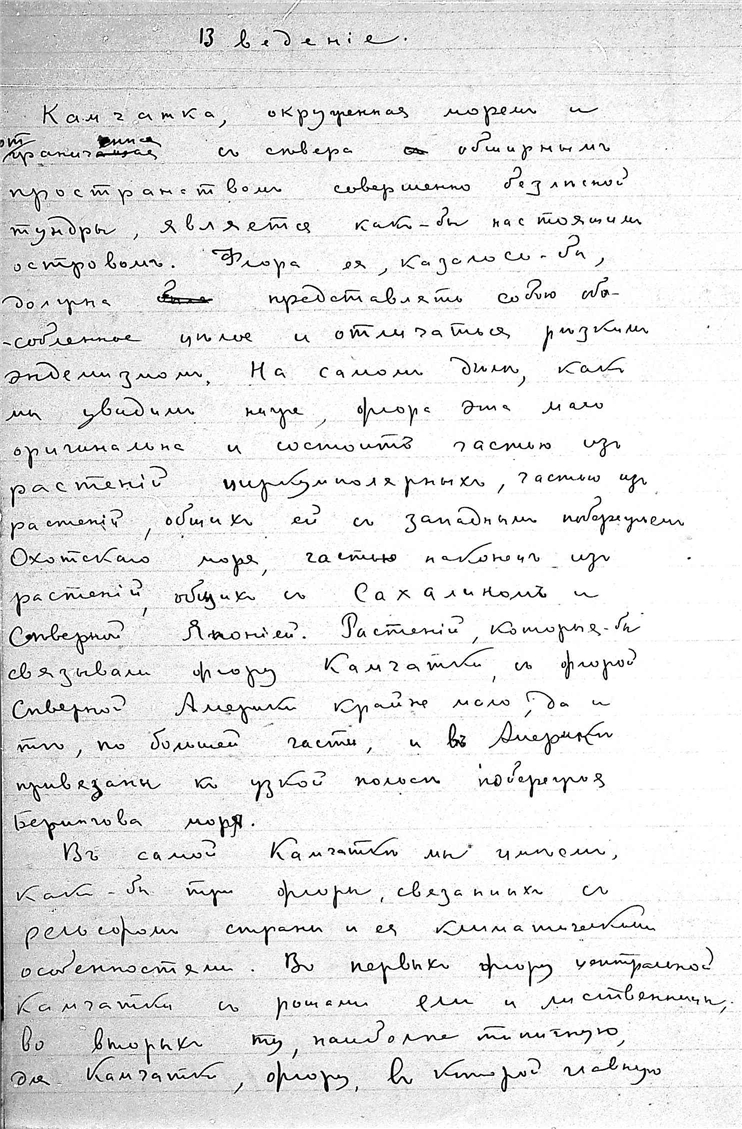 Введеніе.
Камчатка, окруженная моремъ и
отграниченная съ сѣвера обширнымъ
пространствомъ совершенно безлѣсной
тундры, является какъ-бы настоящимъ
островомъ. Флора ея, казалось-бы,
должна представлять собою обо-
-собленное цѣлое и отличаться рѣзкимъ
эндемизмомъ. На самомъ дѣлѣ, какъ
мы увидимъ ниже, флора эта мало
оригинальна и состоитъ частью изъ
растеній циркумполярныхъ, частью изъ
растеній, общихъ ей съ западнымъ побережьемъ
Охотскаго моря, частью наконецъ изъ
растеній, общихъ съ Сахалиномъ и
Сѣверной Японіей. Растеній, которыя-бы
связывали флору Камчатки съ флорой
Сѣверной Америки крайне мало, да и
тѣ, по большей части, и въ Америкѣ
привязаны къ узкой полосѣ побережья
Берингова моря.
Въ самой Камчаткѣ мы имѣемъ,
какъ-бы три флоры, связанныхъ съ
рельефомъ страны и ея климатическими
особенностями. Во первыхъ флору центральной
Камчатки съ рощами ели и лиственницы,
во вторыхъ ту, наиболѣе типичную,
для Камчатки, флору, въ которой главную